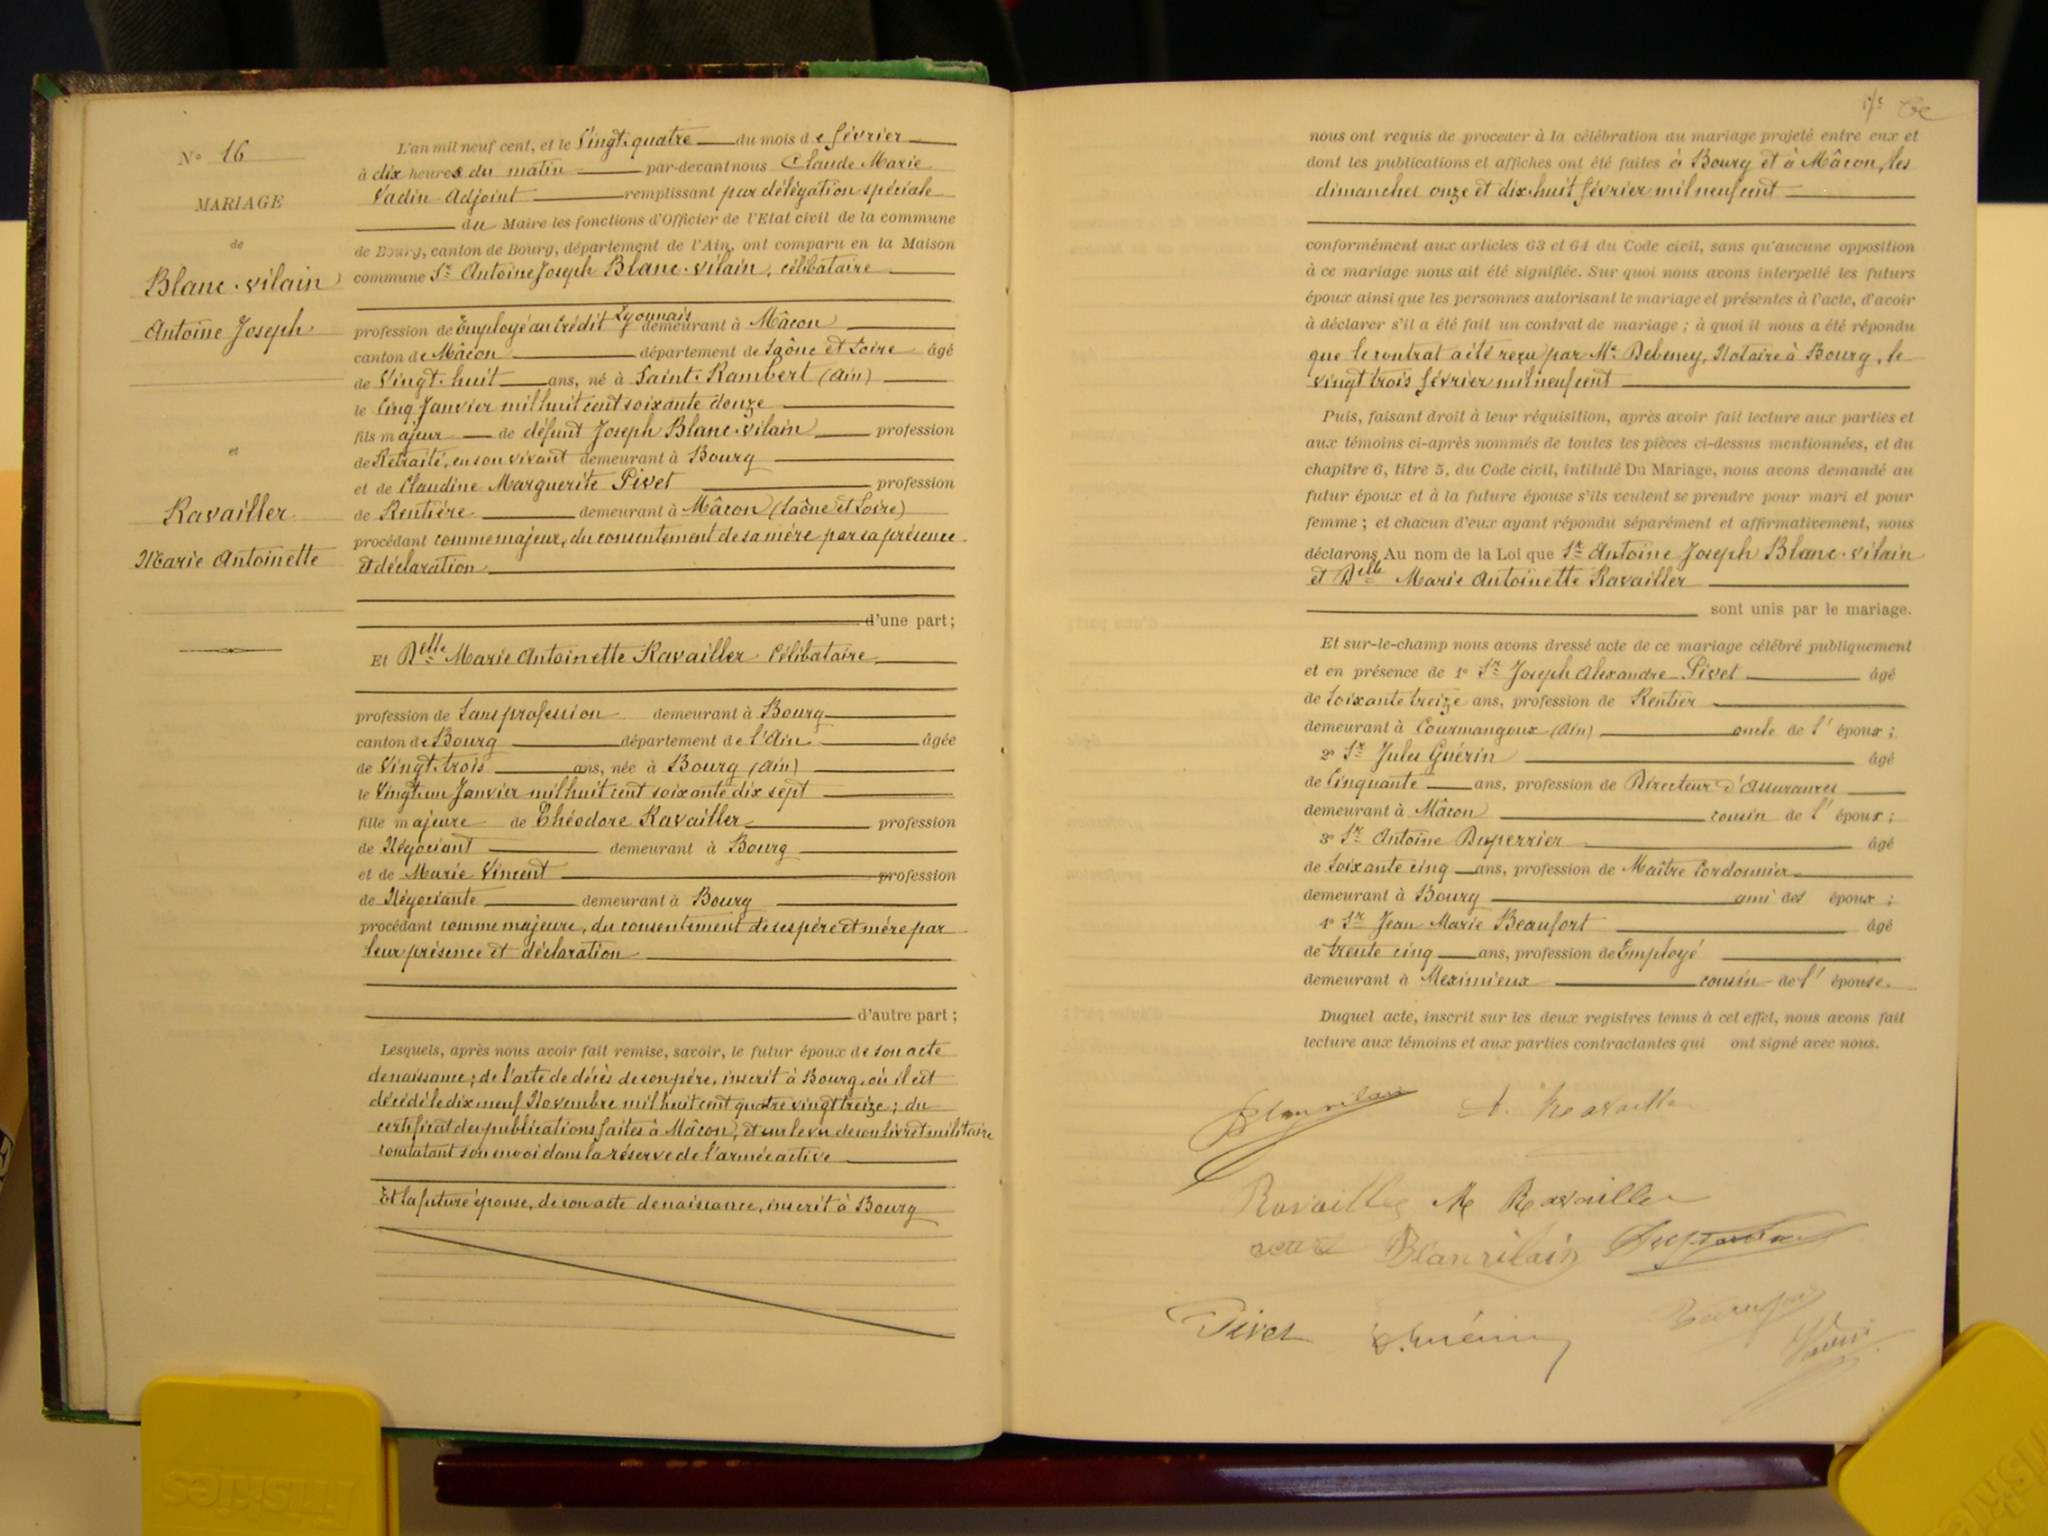 N° 16
MARIAGE
de
Blanc-vilain
Antoine Joseph
et
Ravailler
Marie Antoinette
L'an mil neuf cent, et le Vingt-quatre du mois de février
à dix heures du matin par-devant nous Claude Marie
Vadin Adjoint remplissant par délégation spéciale
du Maire les fonctions d'Officier de l'Etat civil de la commune
de Bourg, canton de Bourg, département de l'Ain, ont comparu en la Maison
commune Sr Antoine Joseph Blanc-vilain, célibataire
profession de Employé au Crédit Lyonnais demeurant à Mâcon
canton de Mâcon département de Saône et Loire âgé
de Vingt-huit ans, né à Saint-Rambert (Ain)
le Cinq Janvier mil huit cent soixante douze
fils majeur de défunt Joseph Blanc-vilain profession
de Retraité, en son vivant demeurant à Bourg
et de Claudine Marguerite Pivet profession
de Rentière demeurant à Mâcon (Saône et Loire)
procédant comme majeur, du consentement de sa mère par sa présence
et déclaration
d'une part;
Et Delle Marie Antoinette Ravailler Célibataire
profession de Sans profession demeurant à Bourg
canton de Bourg département de l'Ain âgée
de Vingt-trois ans, née à Bourg (Ain)
le Vingt un Janvier mil huit cent soixante dix sept
fille majeure de Théodore Ravailler profession
de Négociant demeurant à Bourg
et de Marie Vincent profession
de Négociante demeurant à Bourg
procédant comme majeure, du consentement de ses père et mère par
leur présence et déclaration
d'autre part;
Lesquels, après nous avoir fait remise, savoir, le futur époux de son acte
de naissance; de l'acte de décès de son père, inscrit à Bourg, où il est
décédé le dix neuf Novembre mil huit cent quatre vingt treize; du
certificat des publications faites à Mâcon; et sur le vu de son livret militaire
constatant son envoi dans la réserve de l'armée active
Et la future épouse, de son acte de naissance, inscrit à Bourg
nous ont requis de procéder à la célébration du mariage projeté entre eux et
dont les publications et affiches ont été faites à Bourg et à Mâcon, les
dimanches onze et dix-huit février mil neuf cent
conformément aux articles 63 et 64 du Code civil, sans qu'aucune opposition
à ce mariage nous ait été signifiée. Sur quoi nous avons interpellé les futurs
époux ainsi que les personnes autorisant le mariage et présentes à l'acte, d'avoir
à déclarer s'il a été fait un contrat de mariage; à quoi il nous a été répondu
que le contrat a été reçu par Me Debeney, Notaire à Bourg, le
vingt trois février mil neuf cent
Puis, faisant droit à leur réquisition, après avoir fait lecture aux parties et
aux témoins ci-après nommés de toutes les pièces ci-dessus mentionnées, et du
chapitre 6, titre 5, du Code civil, intitulé Du Mariage, nous avons demandé au
futur époux et à la future épouse s'ils veulent se prendre pour mari et pour
femme; et chacun d'eux ayant répondu séparément et affirmativement, nous
déclarons Au nom de la Loi que Sr Antoine Joseph Blanc-vilain
et Delle Marie Antoinette Ravailler
sont unis par le mariage.
Et sur-le-champ nous avons dressé acte de ce mariage célébré publiquement
et en présence de 1° Sr Joseph Alexandre Pivet âgé
de Soixante treize ans, profession de Rentier
demeurant à Courmangoux (Ain) oncle de l'époux;
2° Sr Jules Guérin âgé
de Cinquante ans, profession de Directeur d'Assurances
demeurant à Mâcon cousin de l'époux;
3° Sr Antoine Duperrier âgé
de Soixante cinq ans, profession de Maître Cordonnier
demeurant à Bourg ami des époux;
4° Sr Jean Marie Beaufort âgé
de trente cinq ans, profession de Employé
demeurant à Meximieux cousin de l'épouse.
Duquel acte, inscrit sur les deux registres tenus à cet effet, nous avons fait
lecture aux témoins et aux parties contractantes qui ont signé avec nous.
Blanvilain A. Ravailler
Ravailler M Ravailler
Blanvilain
Pivet J. Guérin Beaufort Vadin